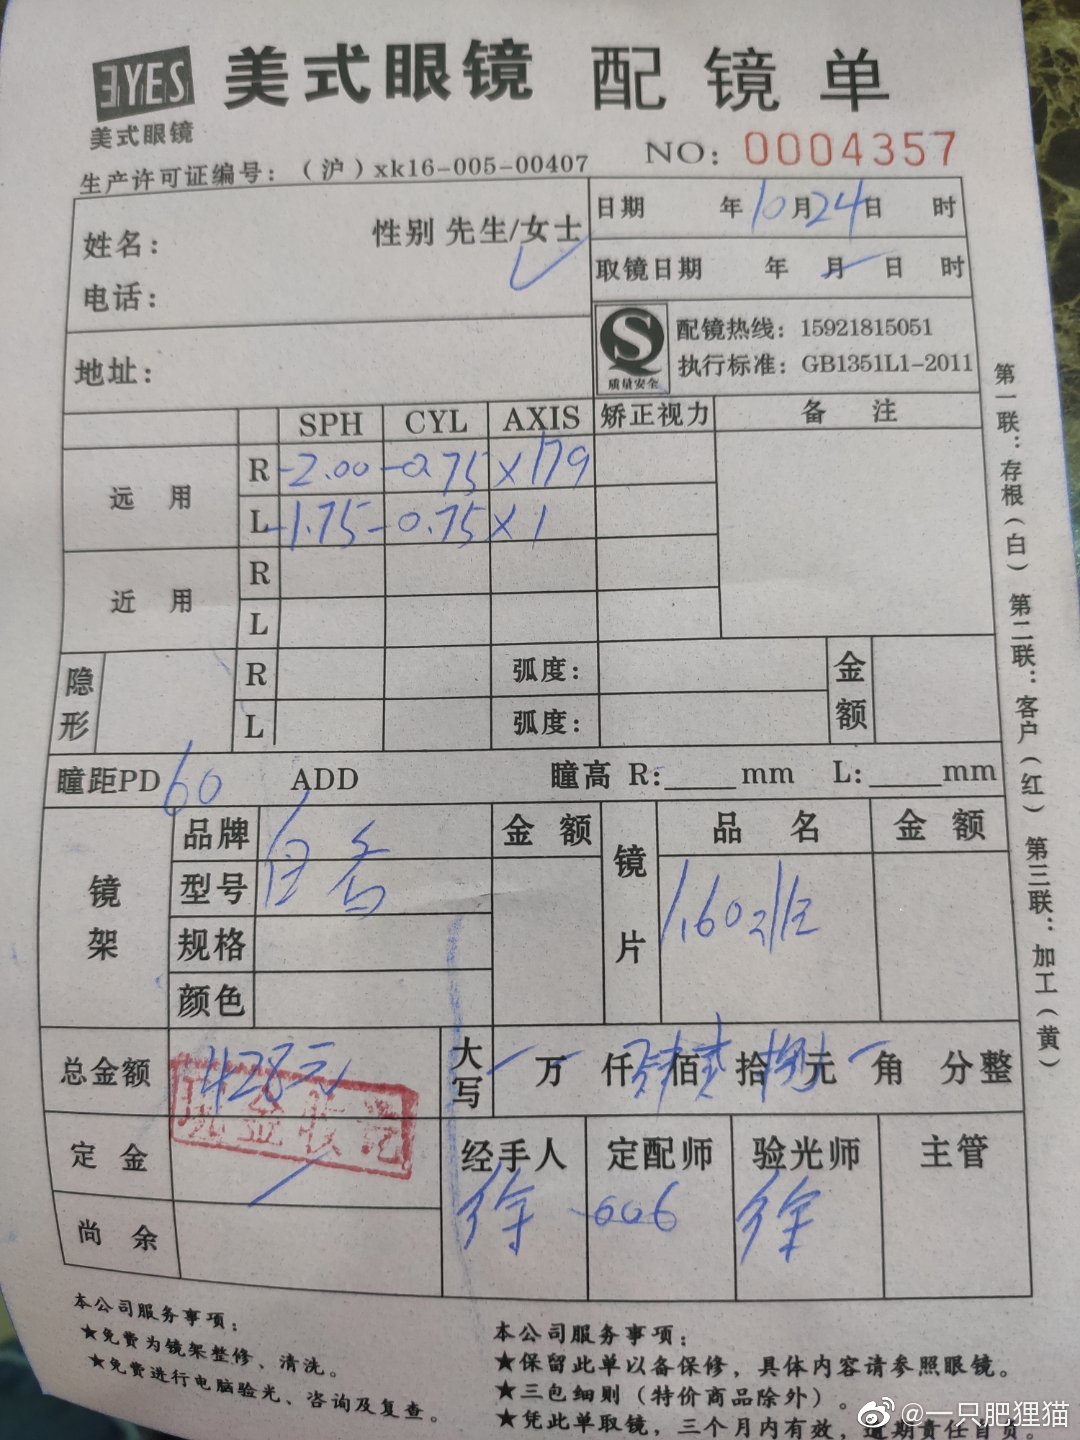 EYES 美式眼镜 配镜单
美式眼镜
生产许可证编号：（沪）xk16-005-00407 NO：0004357
姓名： 性别 先生/女士
电话：
日期 年10月24日 时
取镜日期 年 月 日 时
地址：
S 质量安全
配镜热线：15921815051
执行标准：GB1351L1-2011
SPH CYL AXIS 矫正视力 备注
远用 R -2.00 -0.75 ×179
L -1.75 -0.75 ×1
近用 R
L
隐形 R 弧度：
L 弧度：
金额
瞳距PD 60 ADD 瞳高 R：____mm L：____mm
镜架 品牌 金额 镜片 品名 金额
型号 自备 1.60
规格
颜色
总金额 428元 大写 万 仟 肆佰 贰拾 捌元 角 分整
现金收讫
定金 经手人 定配师 验光师 主管
徐 006 徐
尚余
第一联：存根（白） 第二联：客户（红） 第三联：加工（黄）
本公司服务事项：
★免费为镜架整修、清洗。
★免费进行电脑验光、咨询及复查。
本公司服务事项：
★保留此单以备保修，具体内容请参照眼镜。
★三包细则（特价商品除外）。
★凭此单取镜，三个月内有效，逾期责任自负。
@一只肥狸猫